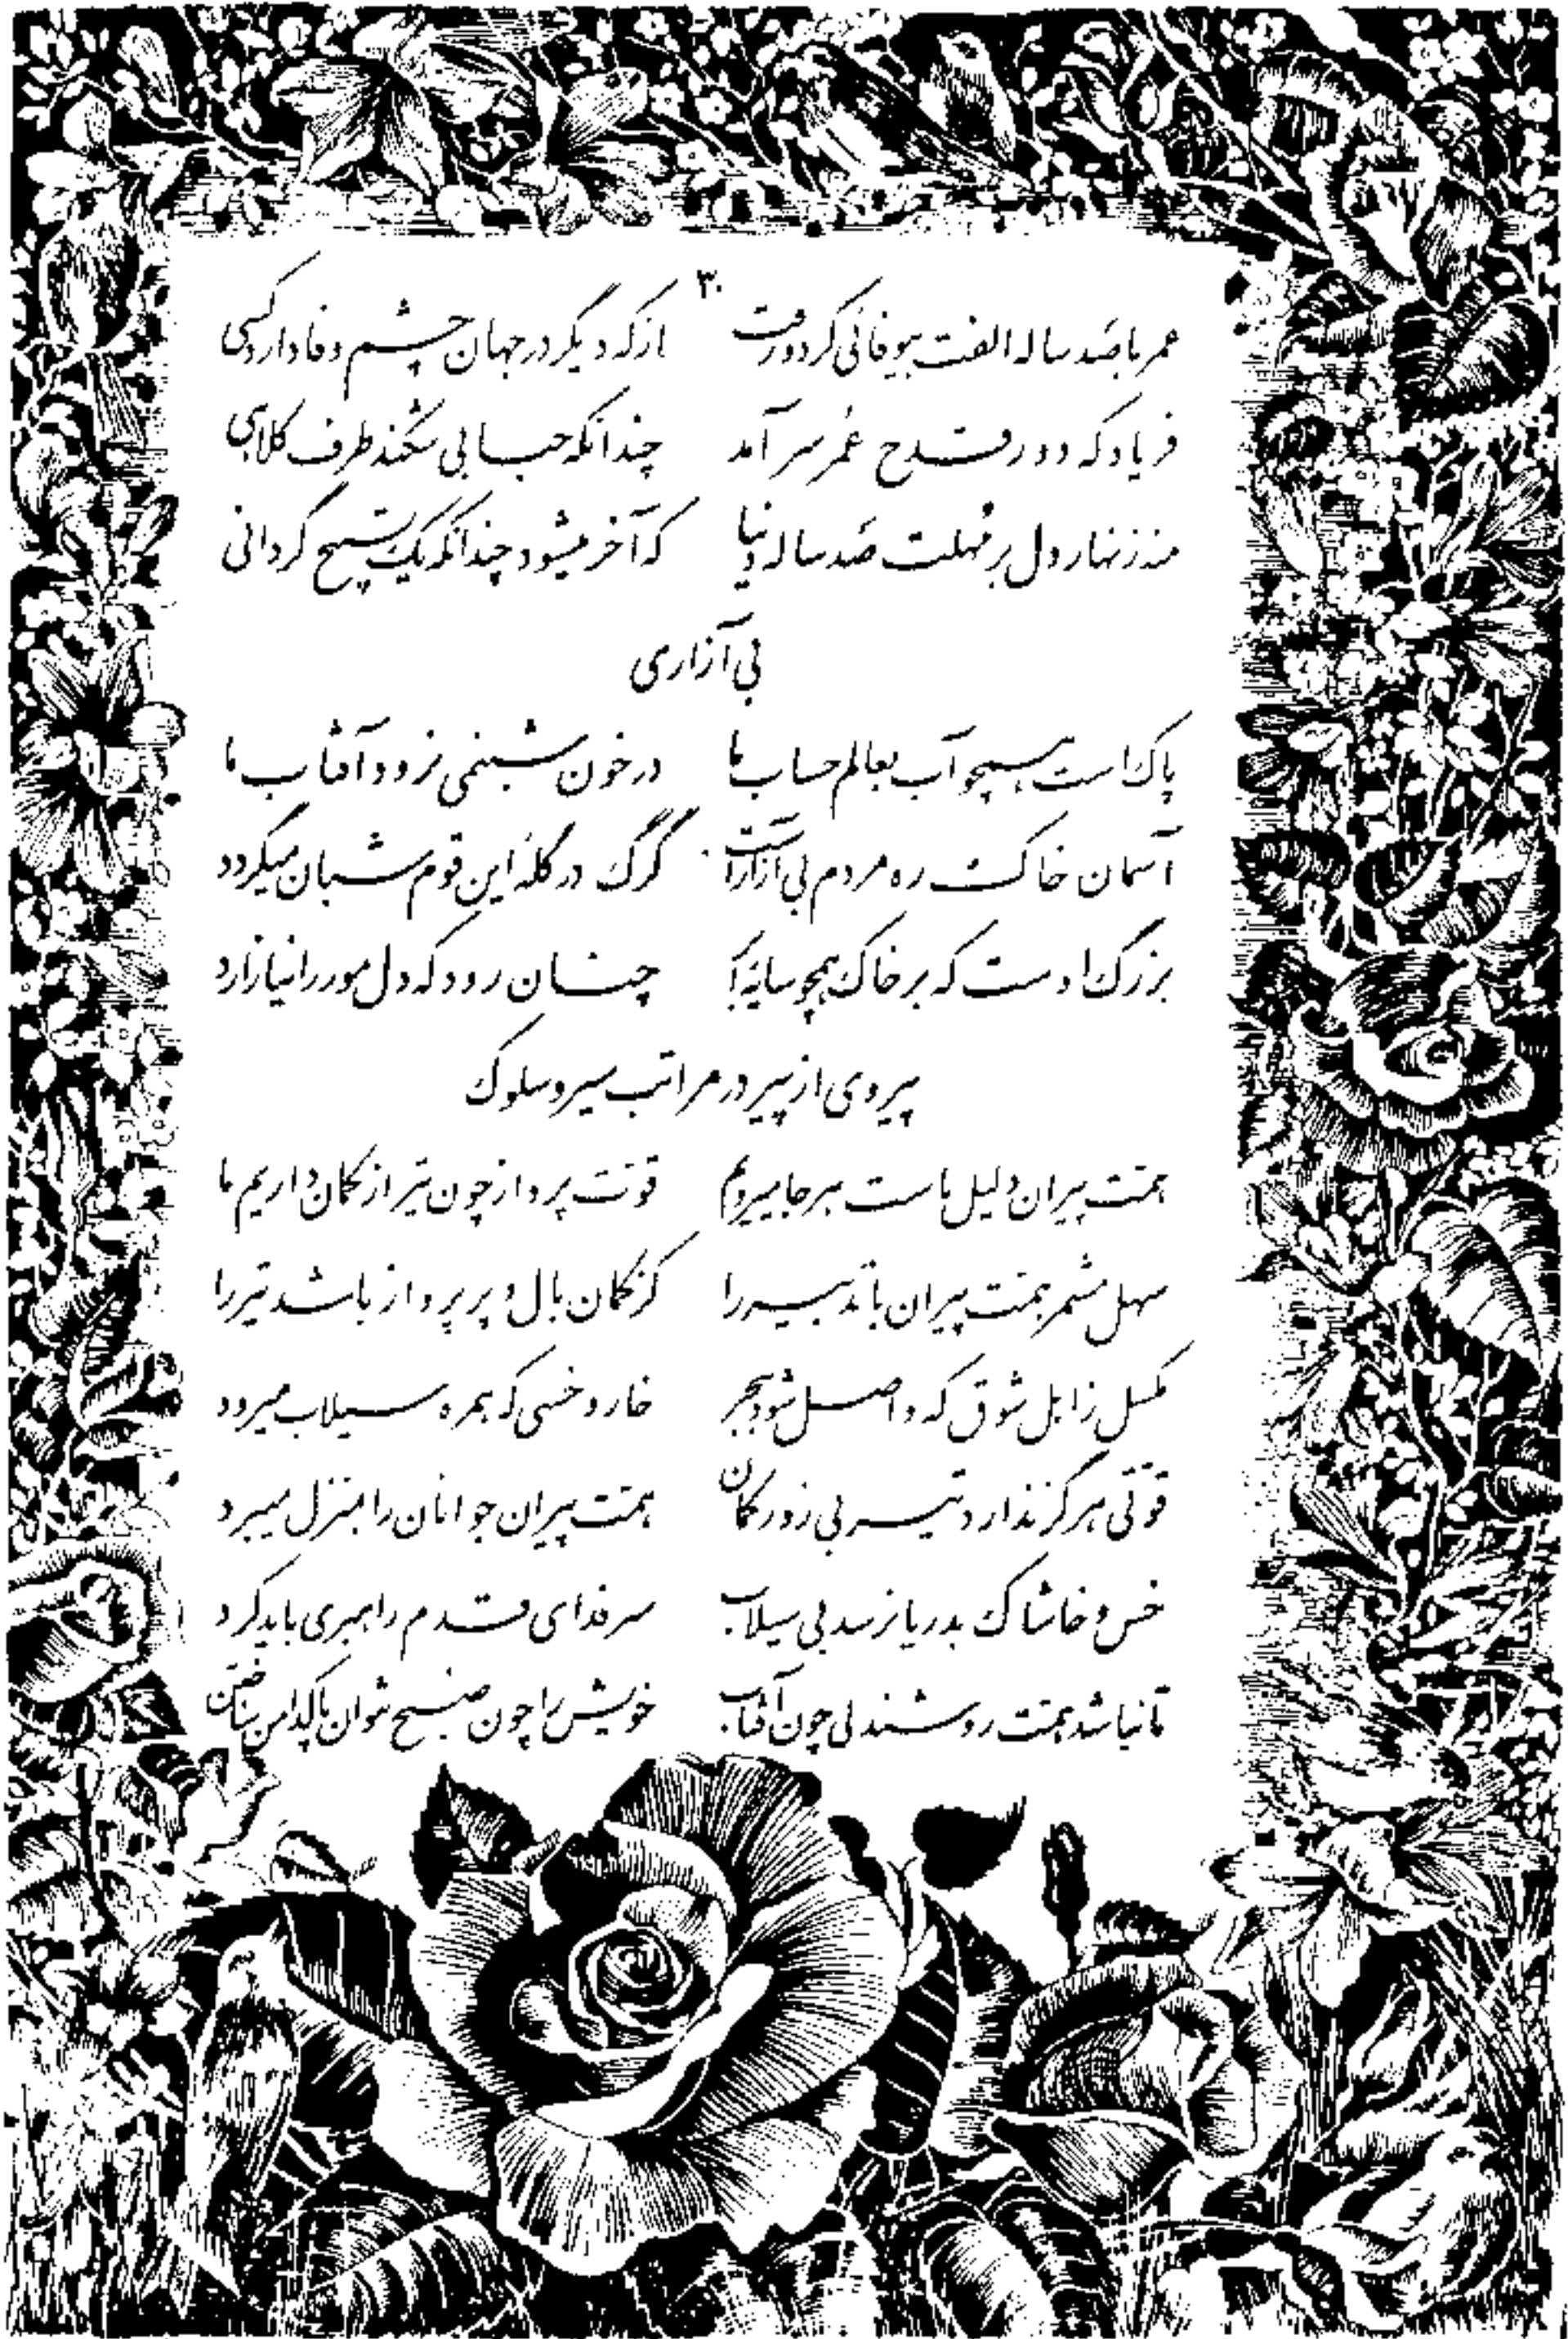 ۳۰
عمر با صد ساله الفت بیوفائی کرد و رفت از که دیگر در جهان چشم وفا دارد کسی
فریاد که دور قدح عمر سر آمد چندانکه حبابی شکند طرف کلاهی
منه زنهار دل بر مهلت صد ساله دنیا که آخر میشود چندانکه یک تسبیح گردانی
بی آزاری
پاک است همچو آب بعالم حساب ما در خون شبنمی نرود آفتاب ما
آسمان خاک ره مردم بی آزار است گرگ در گله این قوم شبان میگردد
بزرگ اوست که بر خاک همچو سایه ابر چنان رود که دل مور را نیازارد
پیروی از پیر در مراتب سیر و سلوک
همت پیران دلیل ماست هر جا میرویم قوت پرواز چون تیر از کمان داریم ما
سهل مشمر همت پیران با تدبیر را کز کمان بال و پر پرواز باشد تیر را
مگسل ز اهل شوق که واصل شود ببحر خار و خسی که همره سیلاب میرود
قوتی هرگز ندارد تیر بی زور کمان همت پیران جوانان را بمنزل میبرد
خس و خاشاک بدریا نرسد بی سیلاب سر فدای قدم راهبری باید کرد
تا نباشد همت روشندلی چون آفتاب خویش را چون صبح نتوان پاکدامن ساختن